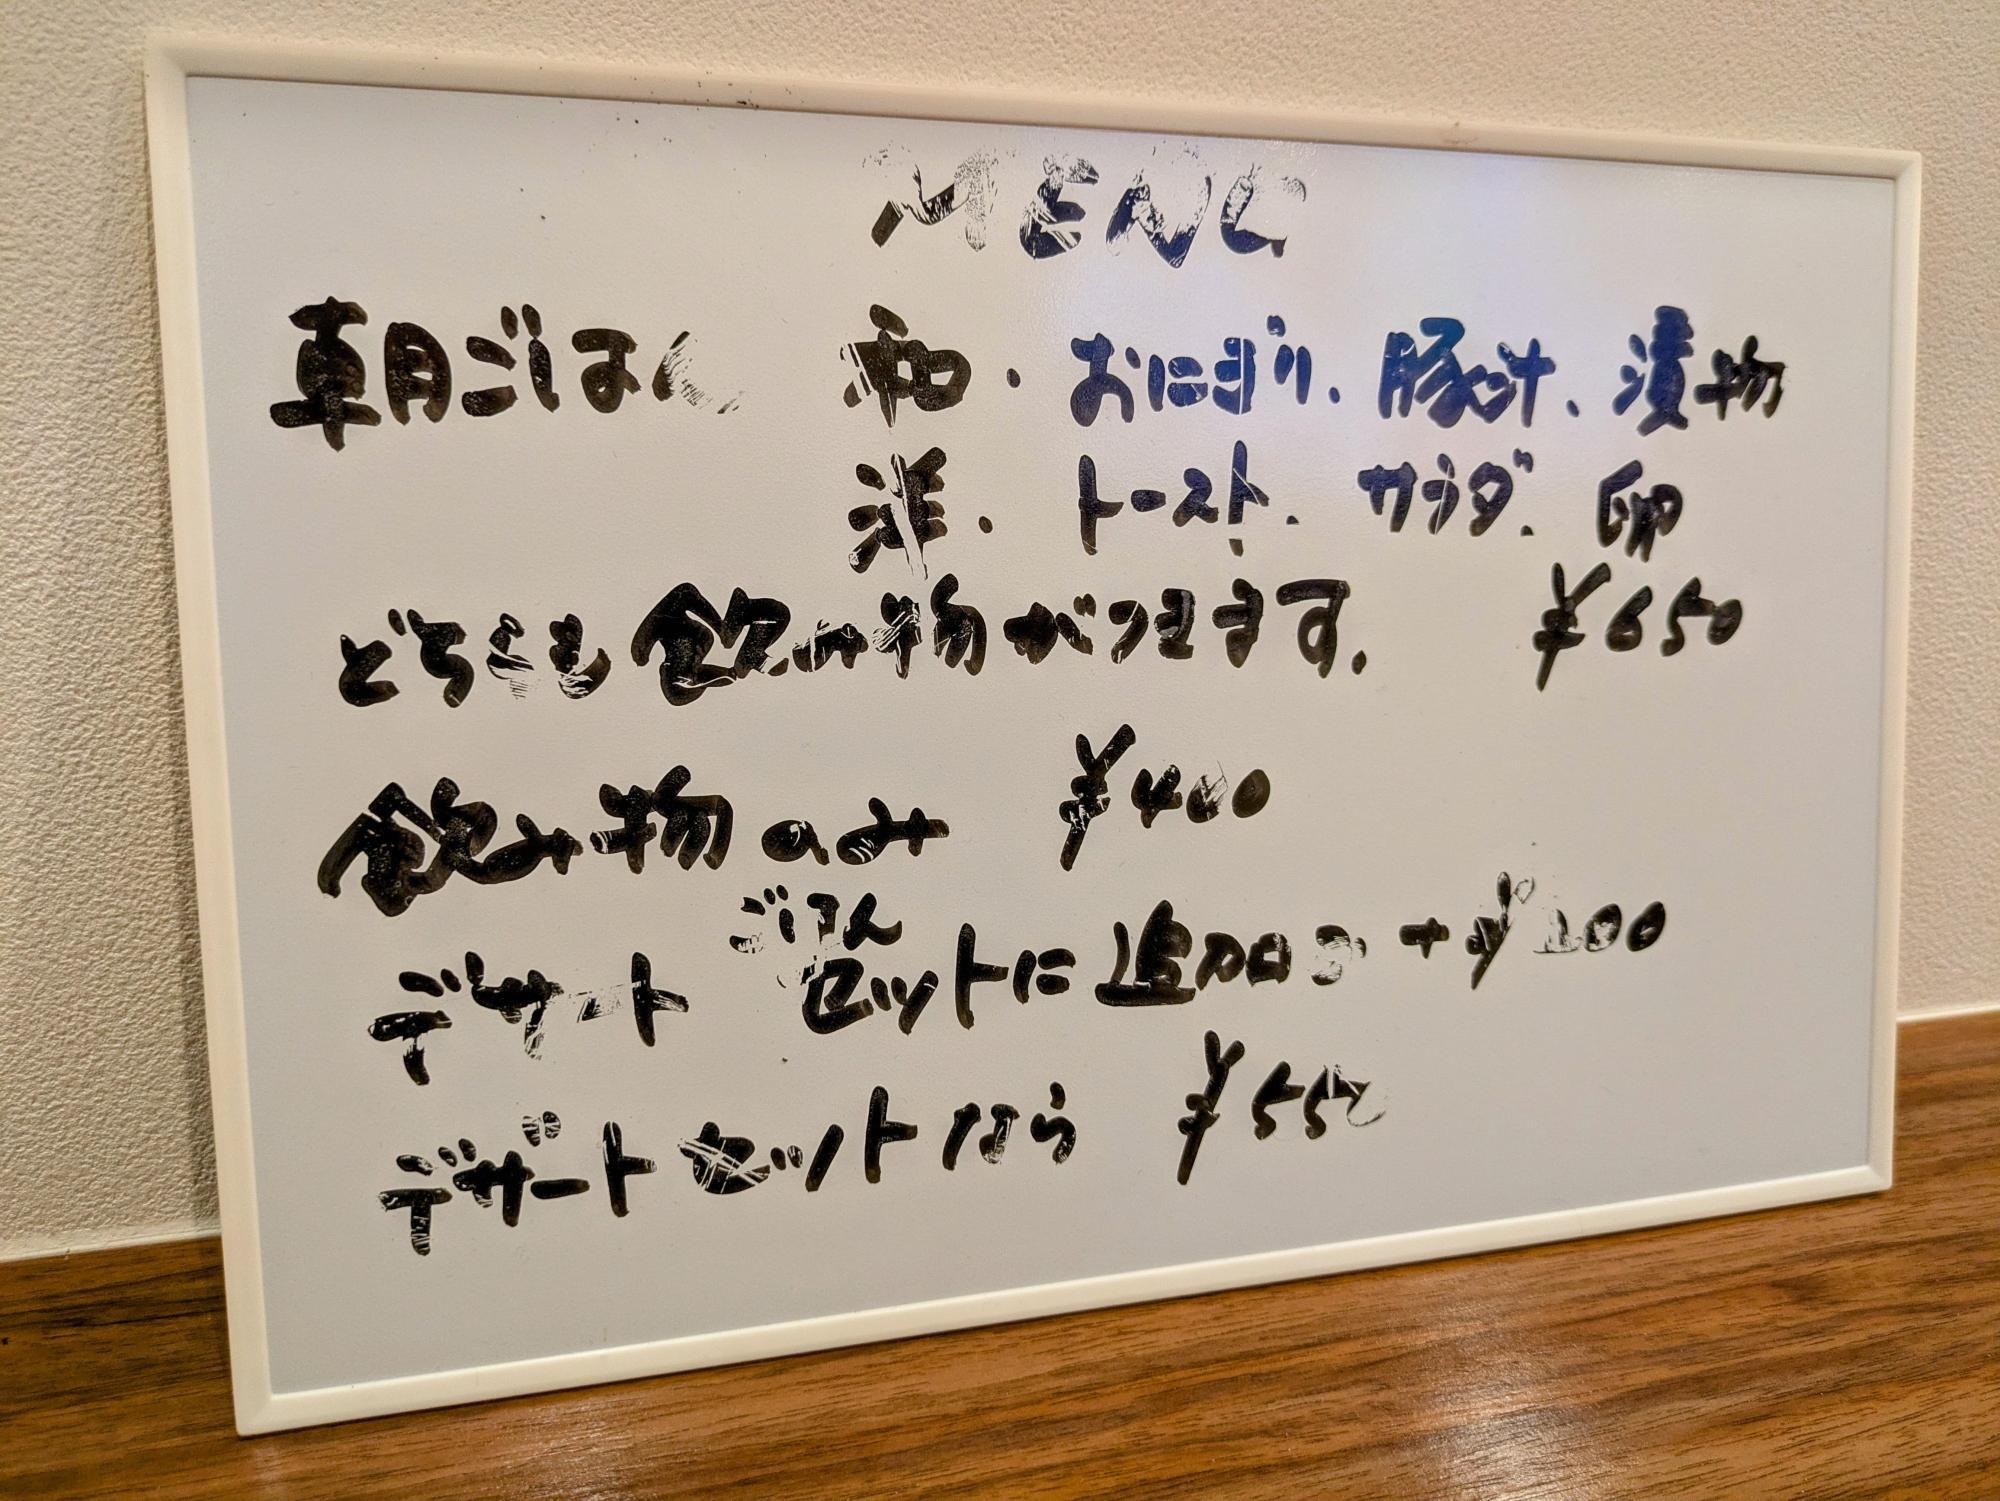 MENU
朝ごはん 和・おにぎり、豚汁、漬物
洋・トースト、サラダ、卵
どちらも飲み物がつきます。 ¥650
飲み物のみ ¥400
ごはん
デザート セットに追加 +¥200
デザートセットなら ¥550